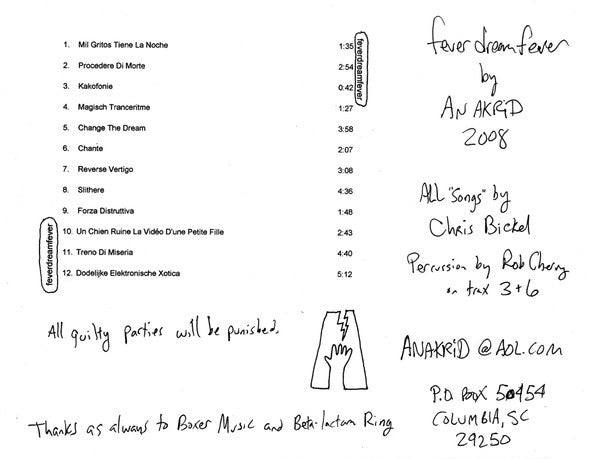 1. Mil Gritos Tiene La Noche 1:35
2. Procedere Di Morte 2:54
3. Kakofonie 0:42
4. Magisch Tranceritme 1:27
5. Change The Dream 3:58
6. Chante 2:07
7. Reverse Vertigo 3:08
8. Slithere 4:36
9. Forza Distruttiva 1:48
10. Un Chien Ruine La Vidéo D'une Petite Fille 2:43
11. Treno Di Miseria 4:40
12. Dodelijke Elektronische Xotica 5:12
feverdreamfever
feverdreamfever
All guilty parties will be punished.
Thanks as always to Boxer Music and Beta-lactam Ring
feverdreamfever
by
ANAKRiD
2008
ALL "Songs" by
Chris Bickel
Percussion by Rob Cherry
on trax 3+6
ANAKRiD @ AOL.COM
P.O. Box 50454
COLUMBIA, SC
29250